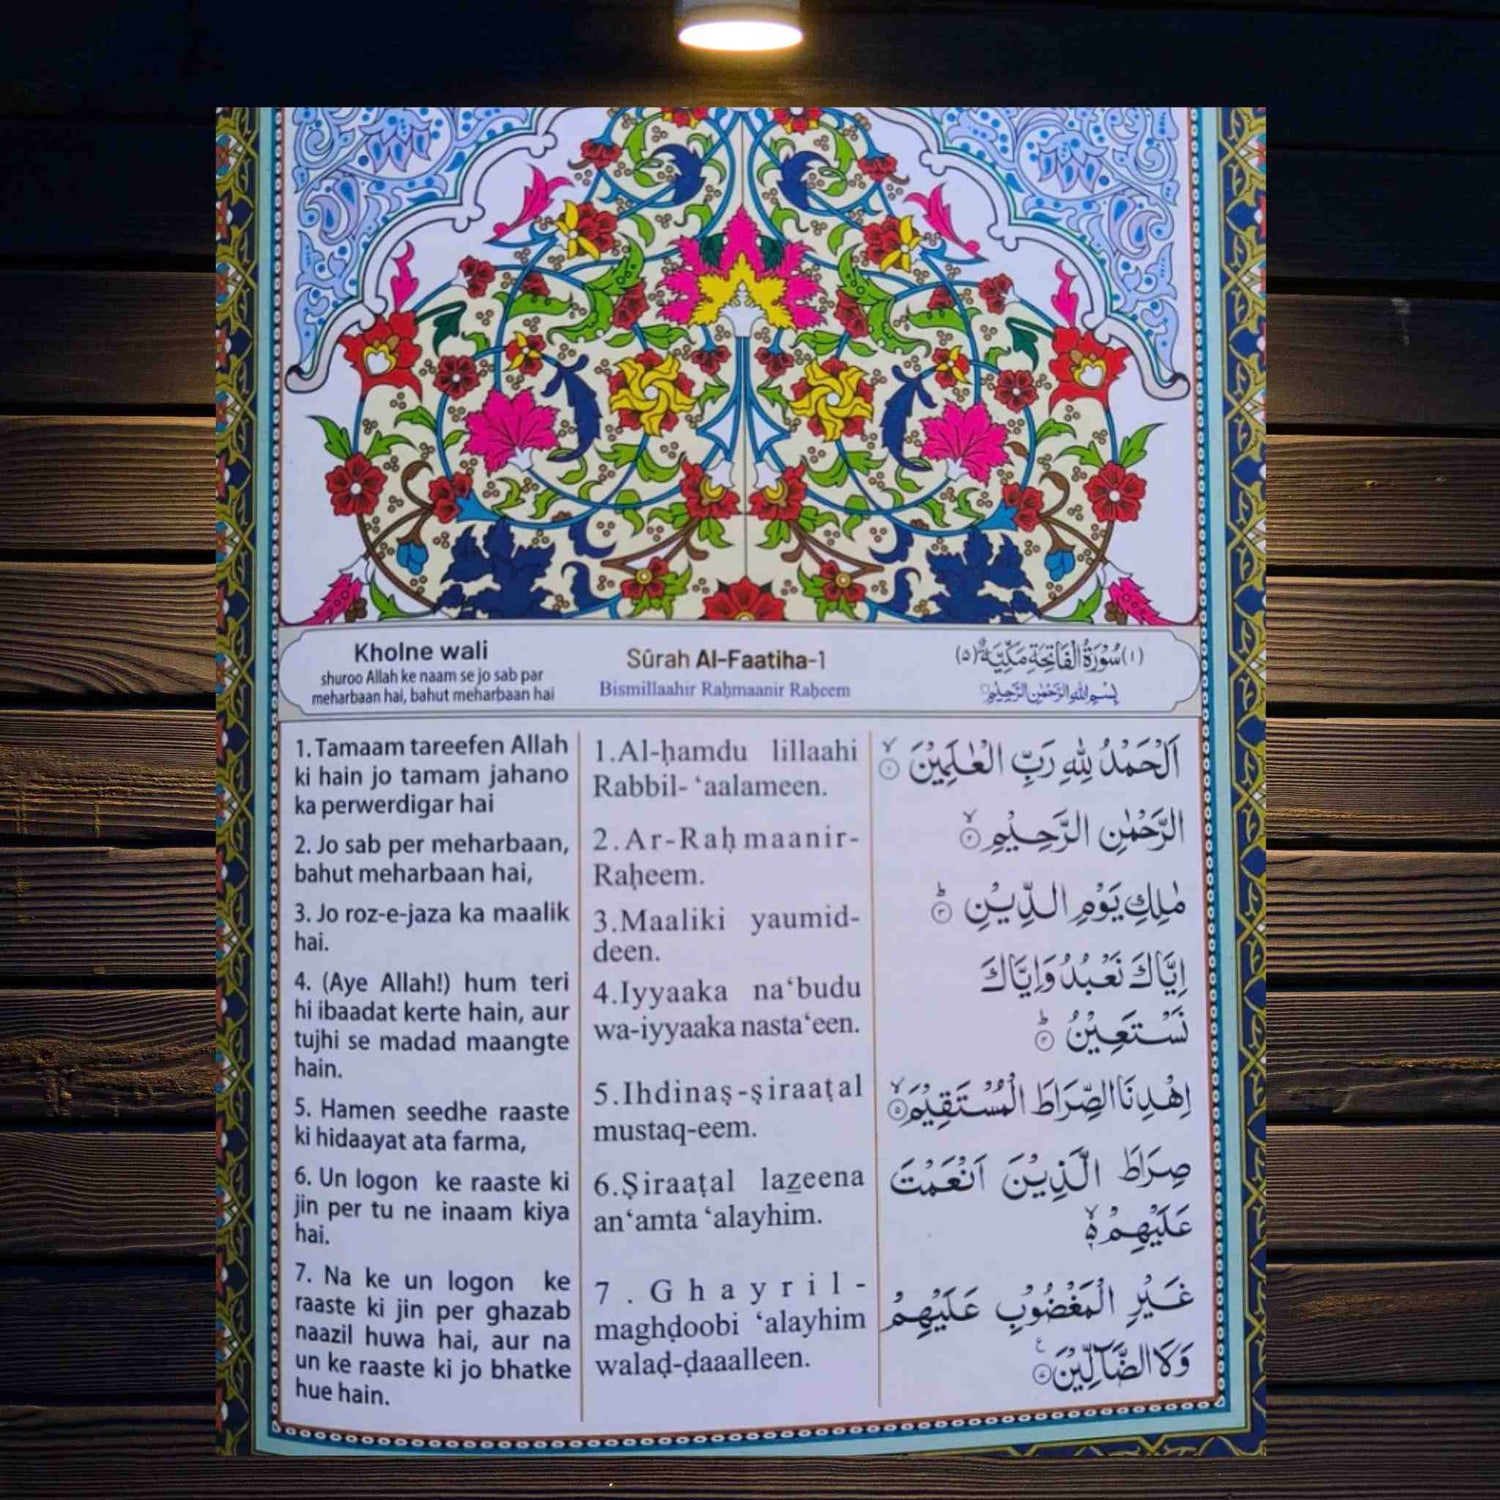 Kholne wali
shuroo Allah ke naam se jo sab par
meharbaan hai, bahut meharbaan hai
Sûrah Al-Faatiha-1
Bismillaahir Raḥmaanir Raḥeem
(١) سُوْرَةُ الْفَاتِحَةِ مَكِّيَّةٌ (٥)
بِسْمِ اللهِ الرَّحْمٰنِ الرَّحِيْمِ
1. Tamaam tareefen Allah
ki hain jo tamam jahano
ka perwerdigar hai
2. Jo sab per meharbaan,
bahut meharbaan hai,
3. Jo roz-e-jaza ka maalik
hai.
4. (Aye Allah!) hum teri
hi ibaadat kerte hain, aur
tujhi se madad maangte
hain.
5. Hamen seedhe raaste
ki hidaayat ata farma,
6. Un logon ke raaste ki
jin per tu ne inaam kiya
hai.
7. Na ke un logon ke
raaste ki jin per ghazab
naazil huwa hai, aur na
un ke raaste ki jo bhatke
hue hain.
1.Al-ḥamdu lillaahi
Rabbil- ‘aalameen.
2.Ar-Raḥmaanir-
Raḥeem.
3.Maaliki yaumid-
deen.
4.Iyyaaka na‘budu
wa-iyyaaka nasta‘een.
5.Ihdinaṣ-ṣiraaṭal
mustaq-eem.
6.Ṣiraaṭal lazeena
an‘amta ‘alayhim.
7.Ghayril-
maghḍoobi ‘alayhim
walaḍ-ḍaaalleen.
اَلْحَمْدُ لِلّٰهِ رَبِّ الْعٰلَمِيْنَ ۙ﴿١﴾
الرَّحْمٰنِ الرَّحِيْمِ ۙ﴿٢﴾
مٰلِكِ يَوْمِ الدِّيْنِ ؕ﴿٣﴾
اِيَّاكَ نَعْبُدُ وَاِيَّاكَ
نَسْتَعِيْنُ ؕ﴿٤﴾
اِهْدِنَا الصِّرَاطَ الْمُسْتَقِيْمَ ۙ﴿٥﴾
صِرَاطَ الَّذِيْنَ اَنْعَمْتَ
عَلَيْهِمْ ۙ۬
غَيْرِ الْمَغْضُوْبِ عَلَيْهِمْ
وَلَا الضَّآلِّيْنَ ﴿٧﴾